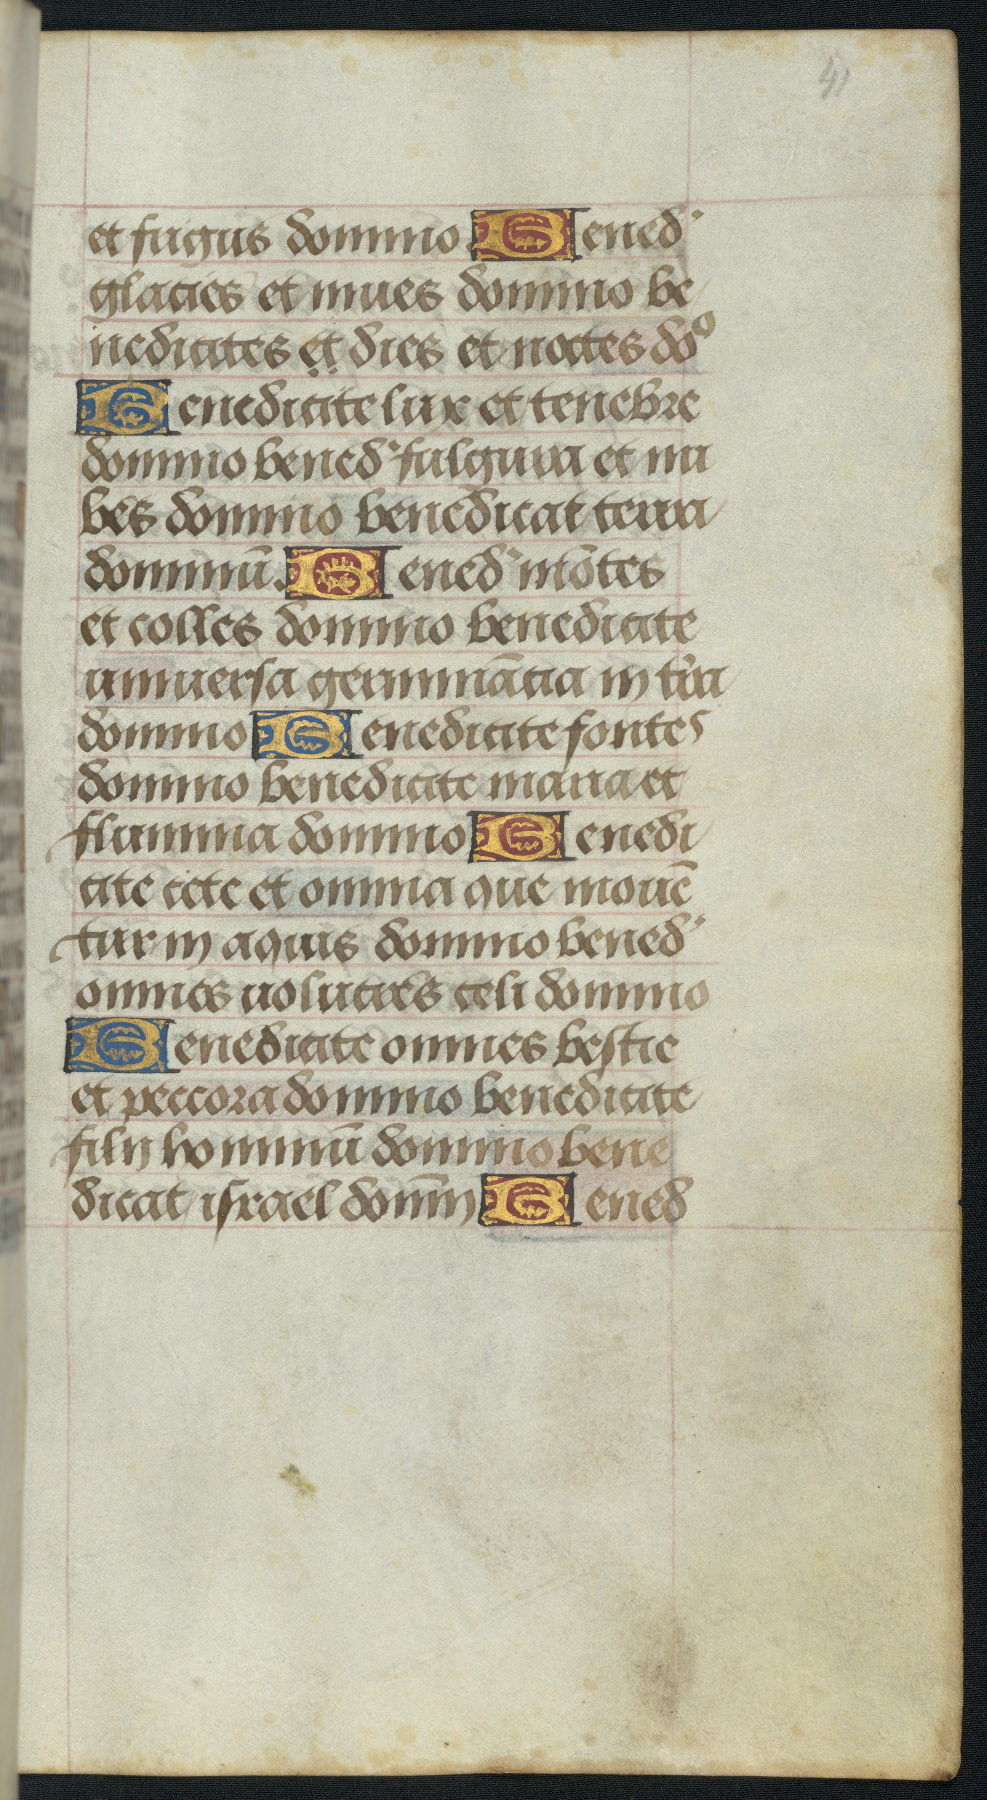 41
et frigus domino Bened'
glacies et niues domino be
nedicites et dies et noctes dōo
Benedicite lux et tenebre
domino bened' fulgura et nu
bes domino benedicat terra
dominū. Bened' mōtes
et colles domino benedicite
uniuersa germināCia in tr̄ra
domino Benedicite fontes
domino benedicite maria et
flumina domino Benedi
cite cete et omnia que mouē
tur in aquis domino bened'
omnes uolucres celi domino
Benedicite omnes bestie
et peccora domino benedicite
filij hominū domino bene
dicat israel dom̄in Bened